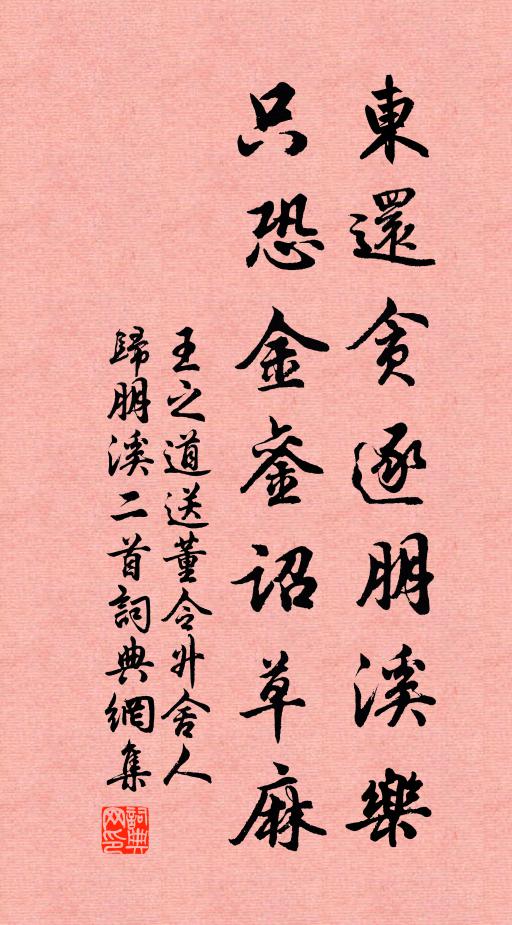 東還貪逐朋溪樂
只恐金銮詔草麻
王之道送董令升舍人
歸朋溪二首詞典網集
詞典
网印